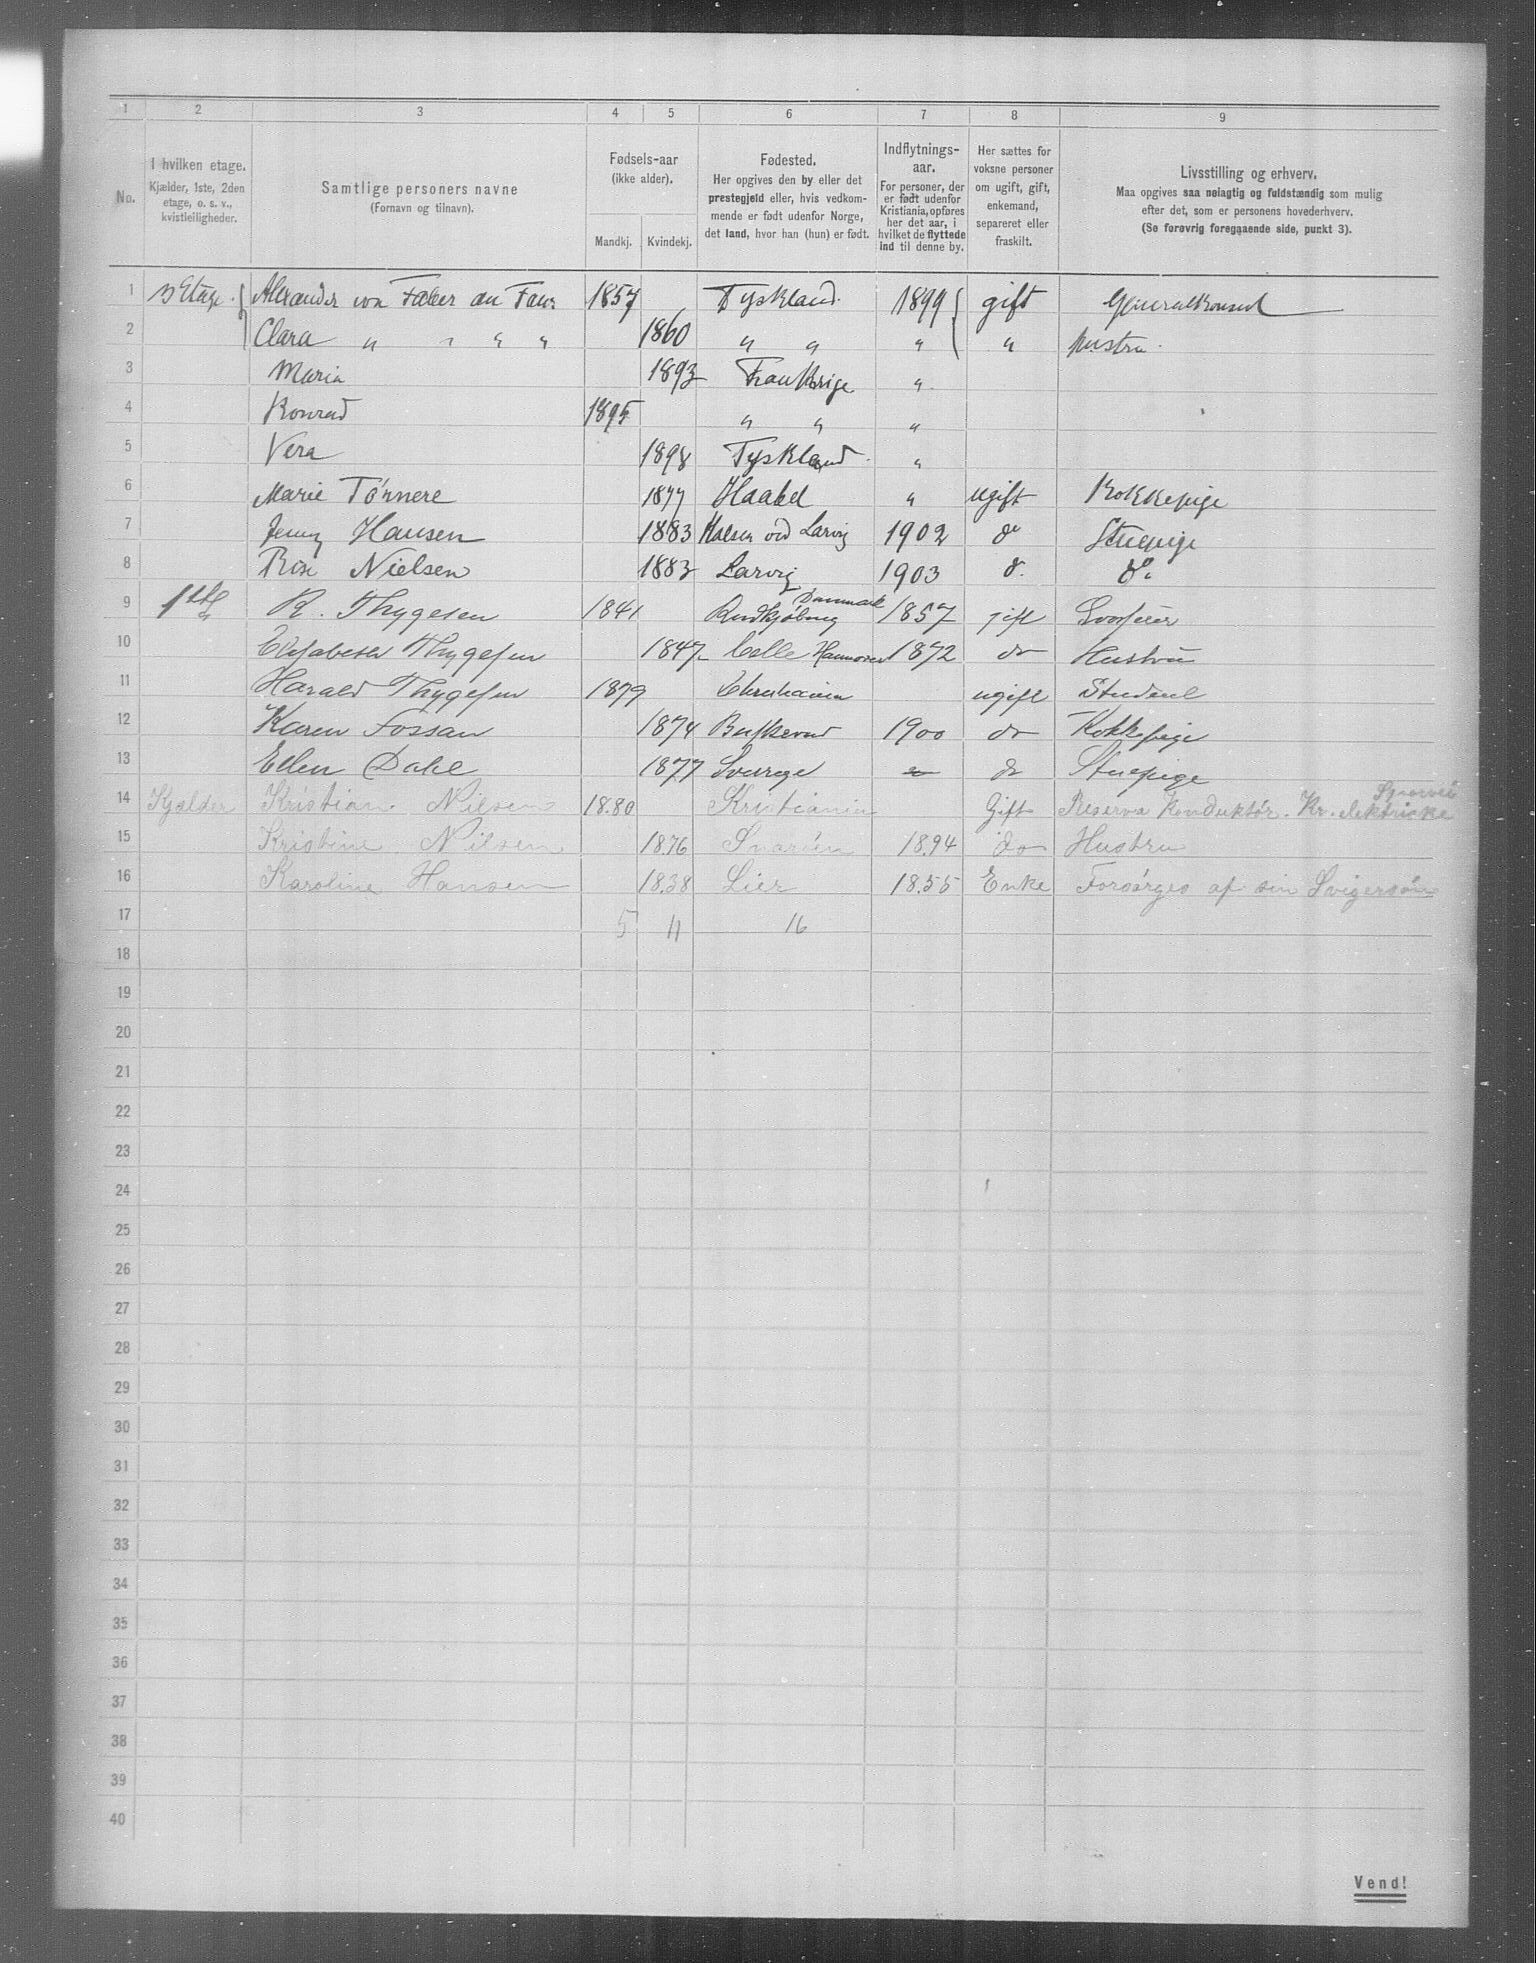 1 2 3 4 5 6 7 8 9
No.
I hvilken etage.
Kjælder, 1ste, 2den
etage, o. s. v.,
kvistleiligheder.
Samtlige personers navne
(Fornavn og tilnavn).
Fødsels-aar
(ikke alder).
Mandkj. Kvindekj.
Fødested.
Her opgives den by eller det
prestegjeld eller, hvis vedkom-
mende er født udenfor Norge,
det land, hvor han (hun) er født.
Indflytnings-
aar.
For personer, der
er født udenfor
Kristiania, opføres
her det aar, i
hvilket de flyttede
ind til denne by.
Her sættes for
voksne personer
om ugift, gift,
enkemand,
separeret eller
fraskilt.
Livsstilling og erhverv.
Maa opgives saa nøiagtig og fuldstændig som mulig
efter det, som er personens hovederhverv.
(Se forøvrig foregaaende side, punkt 3).
1 Etage. Alexander von Faber du Faur 1857 Tyskland. 1899 gift Generalkonsul
2 Clara " " " " 1860 " " " " hustru.
3 Maria 1893 Frankrige "
4 Konrad 1895 " " "
5 Vera 1898 Tyskland. "
6 Marie Tørnere 1877 " ugift Kokkepige
7 Jenny Hansen 1883 Halsen ved Larvig 1902 do Stuepige
8 Nielsen 1883 Larvig 1903 do. do.
9 1ste R. Thygesen 1841 Rudkjøbing Danmark 1857 gift
10 Elisabeth Thygesen 1847 Celle Hannover 1872 do Hustru
11 Harald Thygesen 1879 Christiania ugift Student
12 Karen Fossan 1874 Buskerud 1900 do Kokkepige
13 Ellen Dahl 1877 Sverige do Stuepige
14 Kjælder Kristian Nilsen 1880 Kristiania Gift Reserva Konduktør. Kr. elektriske Sporvei
15 Kristine Nilsen 1876 1894 do Hustru
16 Karoline Hansen 1838 Lier 1855 Enke Forsørges af sin Svigersøn
17 5 11 16
18
19
20
21
22
23
24
25
26
27
28
29
30
31
32
33
34
35
36
37
38
39
40
Vend!